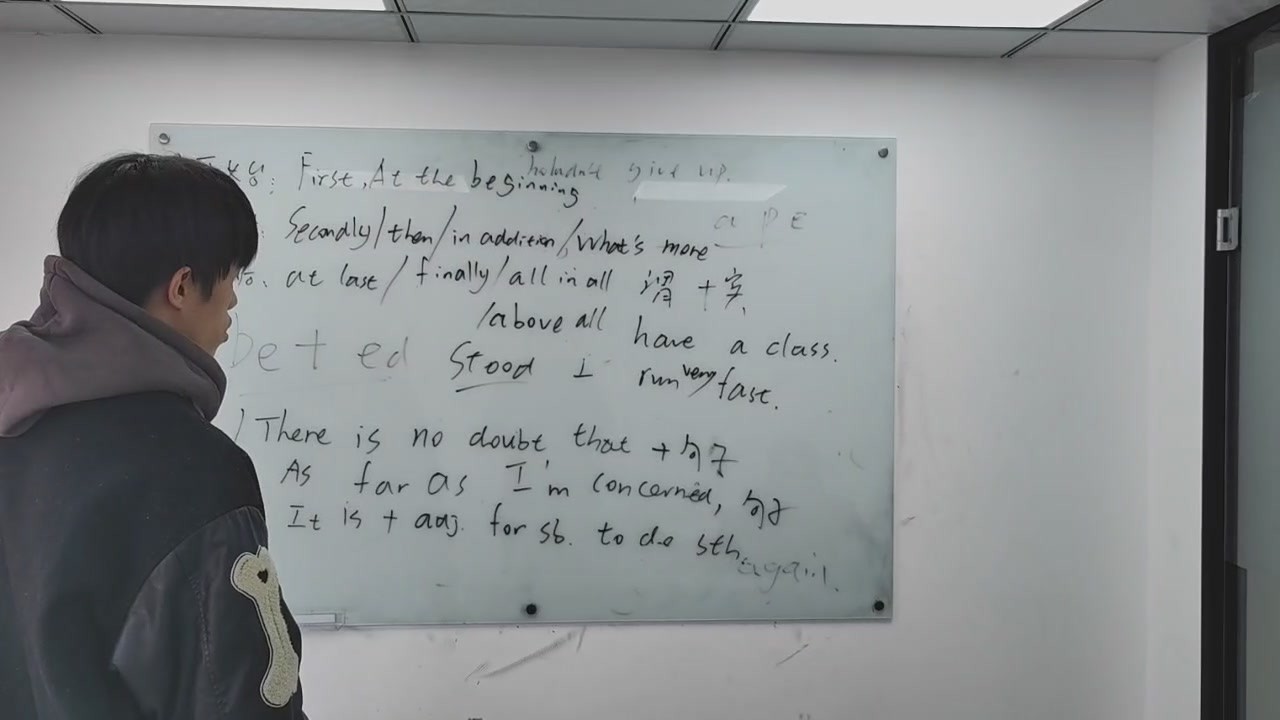 First, At the beginning give up.
a p E
Secondly/then/in addition/What's more
at last/finally/all in all 谓+实
/above all have a class.
be + ed stood run very fast.
There is no doubt that + 句子
As far as I'm concerned, 句子
It is + adj. for sb. to do sth
again.